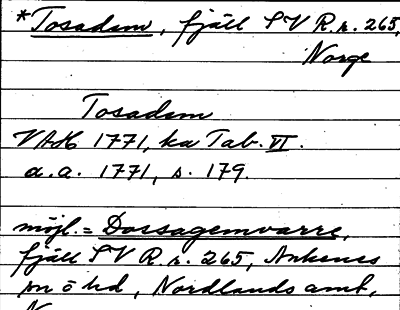 *Tosadsm, fjäll SV R.r. 265,
Norge
Tosadsm
VAH 1771, ka Tab. VI.
a.a. 1771, s. 179.
möjl. = Dossagemvarre,
fjäll SV R.r. 265, Ankenes
sn o hd, Nordlands amt,